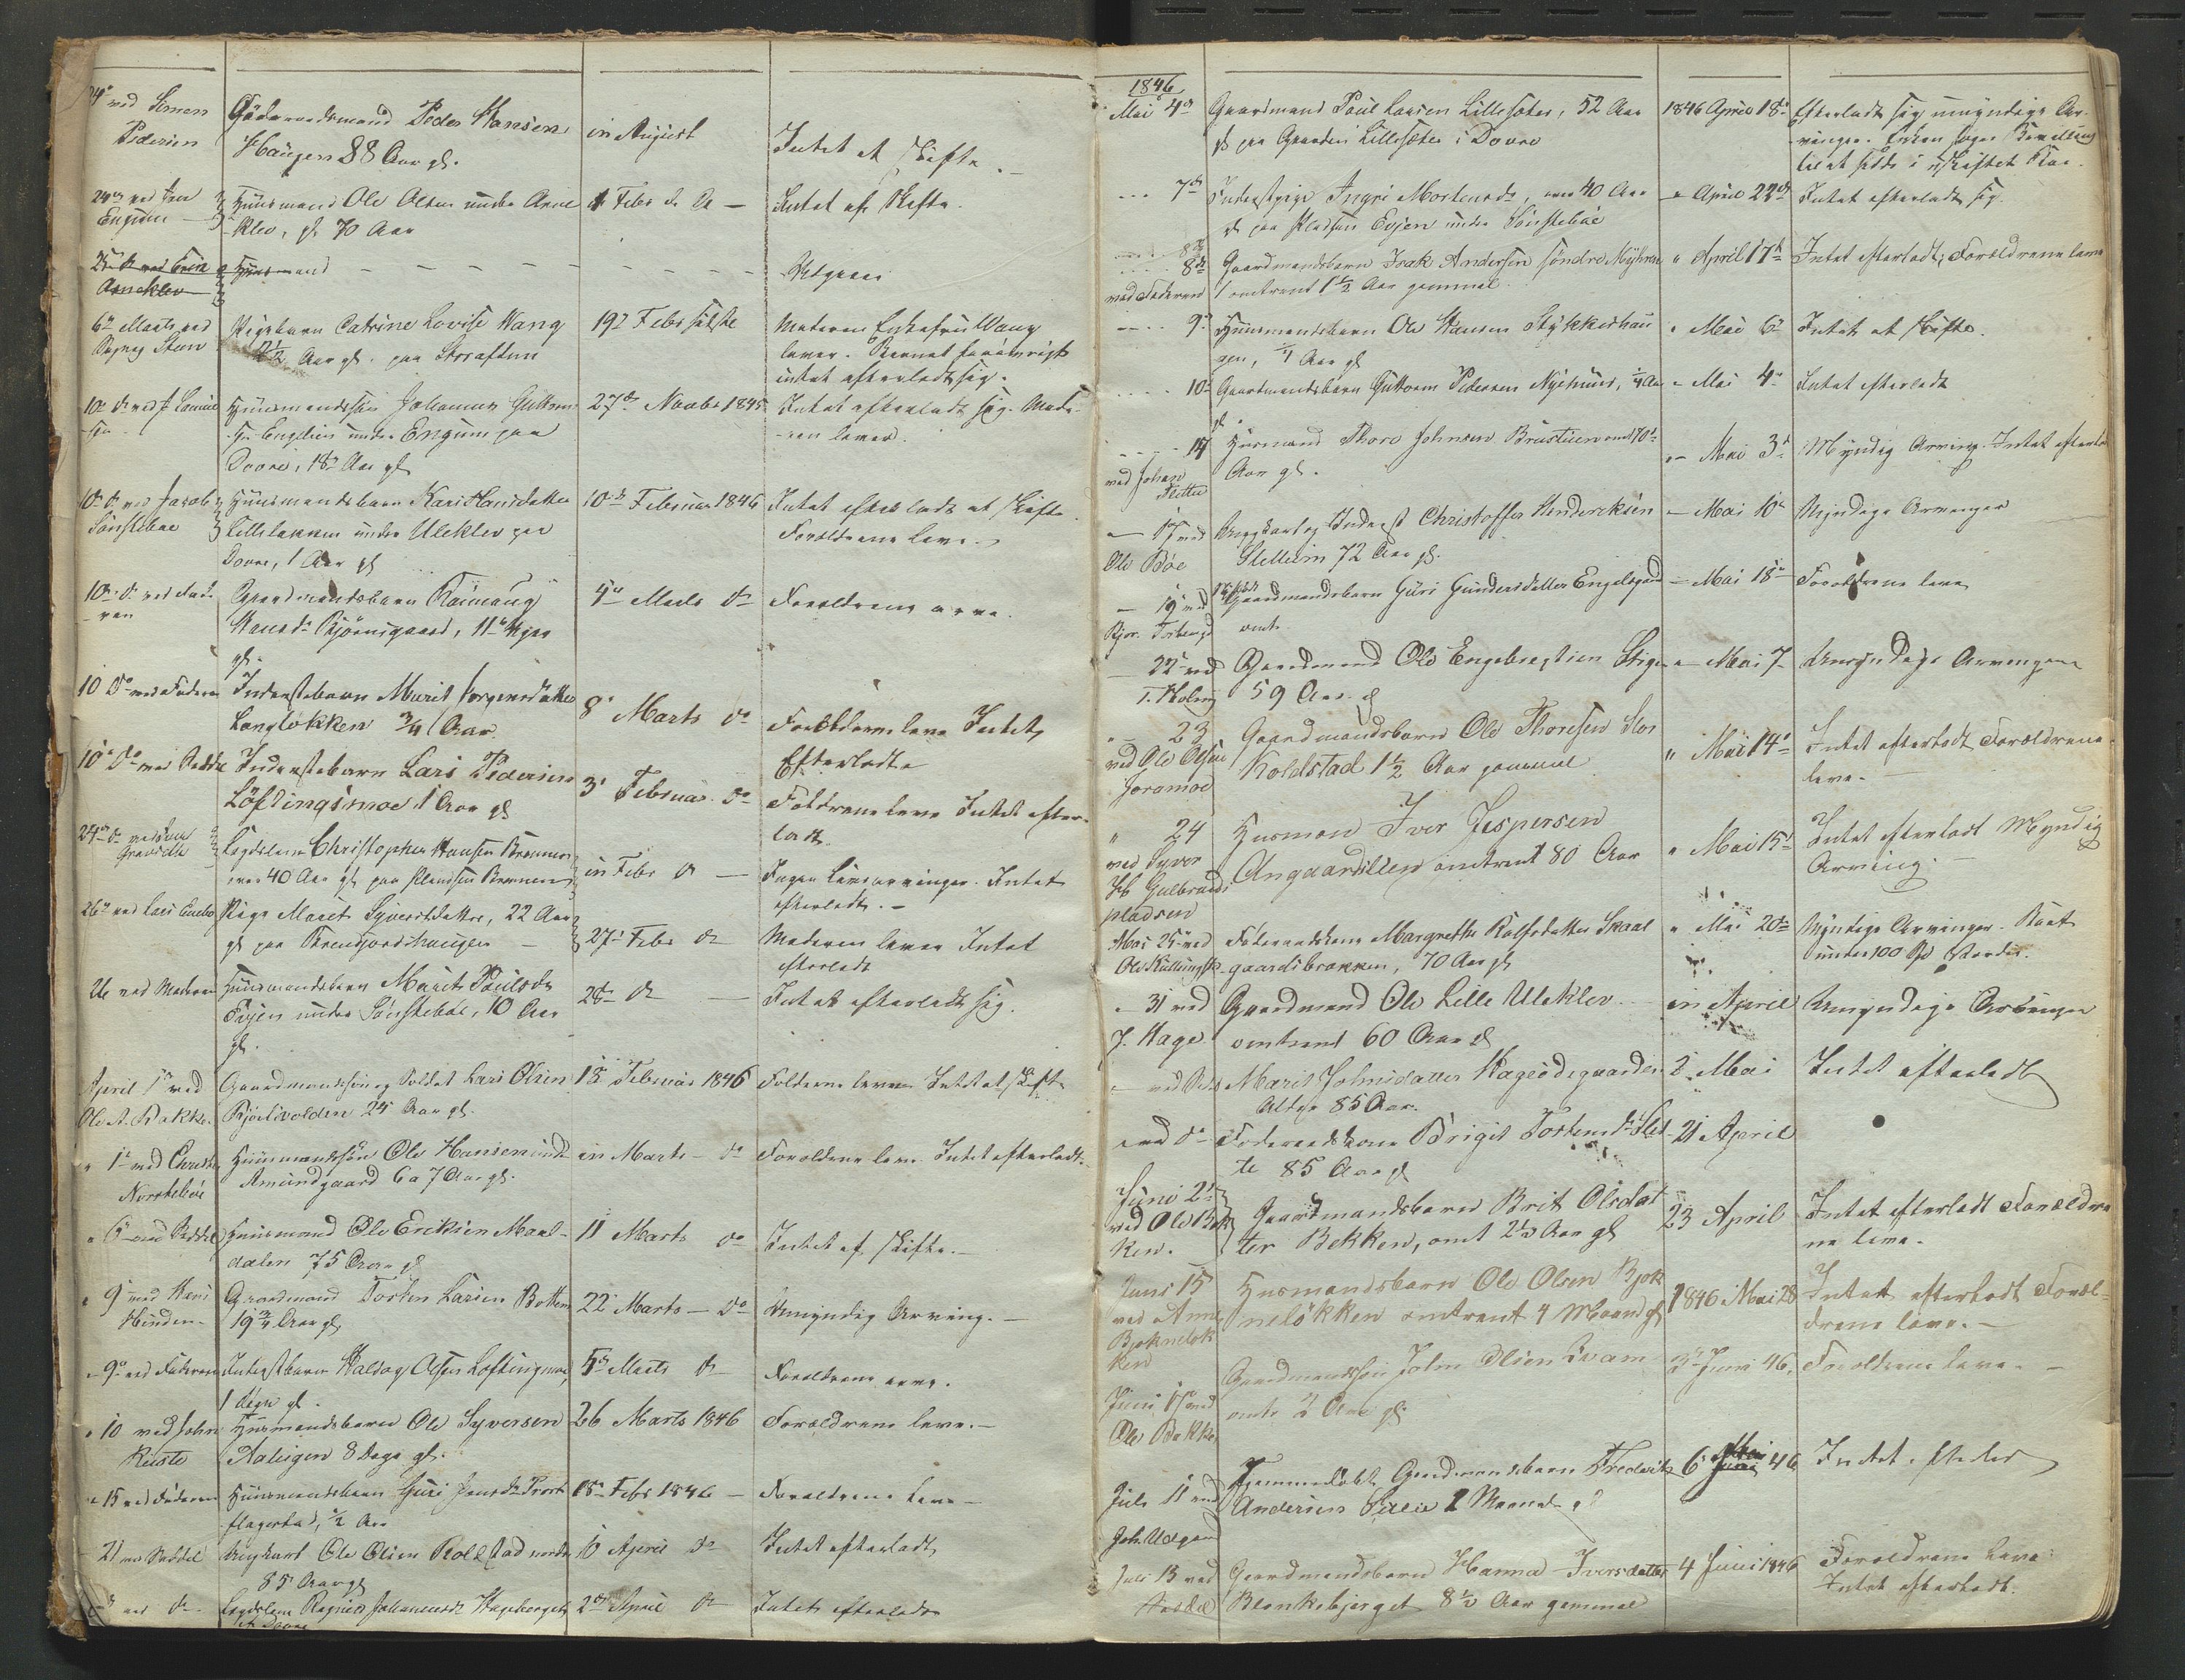 24de ved Simen
Pedersen
Föderaadsmand Peder Hansen
Haugen 88 Aar gl.
in August
Intet at Skifte.
24de ved
Engum
Huusmand Ole Olsen under Arne
klev, gl. 70 Aar
1 Febr d. A
Intet at Skifte.
25de ved
Arneklev
Huusmand
Udgaaer
6te Marts ved
Stuen
Pigebarn Catrine Lovise Wang
2 1/2 Aar gl. paa
19de Febr sidste
Moderen Enkefru Wang
lever. Barnet
intet efterladt sig.
10de do ved
Huusmandssön Johannes Guttorm-
sen Engelien under Engum paa
Dovre, 18 Aar gl
27de Novbr 1845
Intet efterladt sig. Mode-
ren lever.
10de do ved Jacob
Sönstebøe
Huusmandsbarn Kari Hansdatter
Lillelökken under Uleklev paa
Dovre, 1 Aar gl
10de Februar 1846
Intet efterladt at skifte
Forældrene leve
10de do ved Fade-
ren
Gaardmandsbarn
Hansdr Björnsgaard, 11 Uger
gl.
4de Marts do
Forældrene arve.
10 Do ved Faderen
Inderstebarn Marit Jörgensdatter
Langlökken 3/4 Aar
8 Marts do
Forældrene leve Intet
Efterladte
10de Do ved Seddel
Inderstebarn Lars Pedersen
Löftingsmoe 1 Aar gl
3 Februar do
Foældrene leve Intet efter-
ladt.
24de do ved
Lægdslem Christopher Hansen Brennen
over 40 Aar gl paa Pladsen Brennen
in Febr do
Ingen Livsarvinger. Intet
efterladt.
26de ved Lars
Pige Marit Syverdatter, 22 Aar
gl paa
27de Febr do
Moderen lever Intet
efterladt
26 ved Moderen
Huusmandsbarn Marit Poulsdr
Evjen under Sönstebøe, 10 Aar
gl.
28de do
Intet efterladt sig.
April 1ste ved
Ole A. Bakke
Gaardmandssön og Soldat Lars Olsen
24 Aar gl.
18 Februar 1846
Foældrene leve Intet at skifte
" 1ste ved Christen
Norstebøe
Huusmandssön Ole Hansen under
Amundgaard 6 a 7 Aar gl.
in Marts do
Forældrene leve Intet efterladt.
" 6 ved Seddel
Huusmand Ole Eriksen Maal-
dalen 75 Aar gl
11 Marts do
Intet at skifte.
" 9 ved Hans
Hinden
Gaardmand Torsten Larsen Bottem
19 3/4 Aar gl,
22 Marts - do
Umyndig Arving.
" 9de ved Faderen
Inderstbarn Haldog Olsen Löftingsmoe,
1 Uge gl.
5te Marts do
Forældrene arve.
" 10 ved John
Ruste
Husmandsbarn Ole Syversen
8 Dage gl.
26 Marts 1846
Forældrene leve.
" 15 ved Faderen
Huusmandsbarn Guri Jensdr
1/2 Aar
18de Febr 1846
Forældrene leve
21 ved Seddel
Ungkarl Ole Olsen Kolstad nordre
85 Aar gl
10 April do
Intet efterladt
do ved do
Lægdslem Ragnild Johannesdr Hageberget
paa Dovre
2den April do
Intet efterladt
1846
Mai 4de
Gaardmand Poul Larsen Lillesæter, 52 Aar
gl paa Gaarden Lillesæter i Dovre
1846 April 18de
Efterladt sig umyndige Ar-
vinger. Enken søger Bevilling
til at sidde i uskiftet Boe.
7de
Inderstpige Ingri Mortensdr, over 40 Aar
gl paa Pladsen Evjen under Sönstebøe
" April 22de
Intet efterladt sig.
8de
ved Faderen
Gaardmandsbarn Isak Andersen söndre
omtrent 1 1/2 Aar gammel
" April 17de
Intet efterladt; Forældrene leve
9de
Huusmandsbarn Ole Hansen Stykkerhau
gen, 1/4 Aar gl
" Mai 6te
Intet at skifte.
10de
Gaardmandsbarn Guttorm Pedersen Nyhuus, 1/4 Aar
gl.
" Mai 4de
Intet efterladt
14
ved Johan
Slette
Husmand Thore Johnsen Brustuen omt 70
Aar gl.
" Mai 3de
Myndig Arving. Intet efterladt
17 ved
Ole Bøe
Ungkarl og Inderst Christoffer Hendercksen
Slettum 72 Aar gl.
Mai 10de
Myndige Arvinger
19 ved
Gaardmandsbarn Guri Gundersdatter Engelsgaard
omtr
Mai 18de
Forældrene leve
22 ved
T. Holen
Gaardmand Ole Engebregtsen Stige
59 Aar gl
Mai 7
Umyndige Arvingere
23
ved Ole Olsen
Joramoe
Gaardmandsbarn Ole Thoresen Stor
Koldstad 1 1/2 Aar gammel
" Mai 14de
Intet efterladt Forældrene
leve.
" 24
ved Syver
Gulbrands
pladsen
Husman Iver Jespersen
Angaardslien omtrent 80 Aar
" Mai 15de
Intet efterladt Myndig
Arving.
Mai 25 ved
Føderaadskone Margrethe Rolfsdatter Skaal
gaardsbrækken, 70 Aar gl
" Mai 20de
Myndige Arvinger. Boet
under 100 Spd Værdie.
" 31 ved
J. Hage
Gaardmand Ole Lille Uleklev
omtrent 60 Aar gl
in April
Umyndige Arvinger
" ved do
Marit Johnsdatter Hageødegaarden
Alder 85 Aar.
2 Mai
Intet efterladt
" ved do
Føderaadskone Brigit Torstensdr Slet
te 85 Aar gl
21 April
Juni 2de
ved Ole Bek
ken.
Gaardmandsbarn Brit Olsdat
ter Bekken, omt 2 1/2 Aar gl
23 April
Intet efterladt Forældre
ne leve.
Juni 15
ved Arne
Bjøknelök
ken
Husmandsbarn Ole Olsen Bjøk
nelökken omtrent 4 Maaned gl
1846 Mai 28
Intet efterladt Foræl-
drene leve.
Juni 15de ved
Ole Bakke
Gaardmandssön John Olsen Kvam
omtr 2 Aar gl
3de Juni 46.
Forældrene leve.
Juli 11 ved
Joh. Udgaard
Hjemmedöbt Gaardmandsbarn Frederik
Andersen 1 Maaned gl
6 Mai 46
Intet efterladt
Juli 13 ved
Seddel
Gaardmandsbarn Hanna Iversdatter
Blenkebjerget 8 1/2 Aar gammel
4 Juni 1846
Forældrene leve
Intet efterladt.